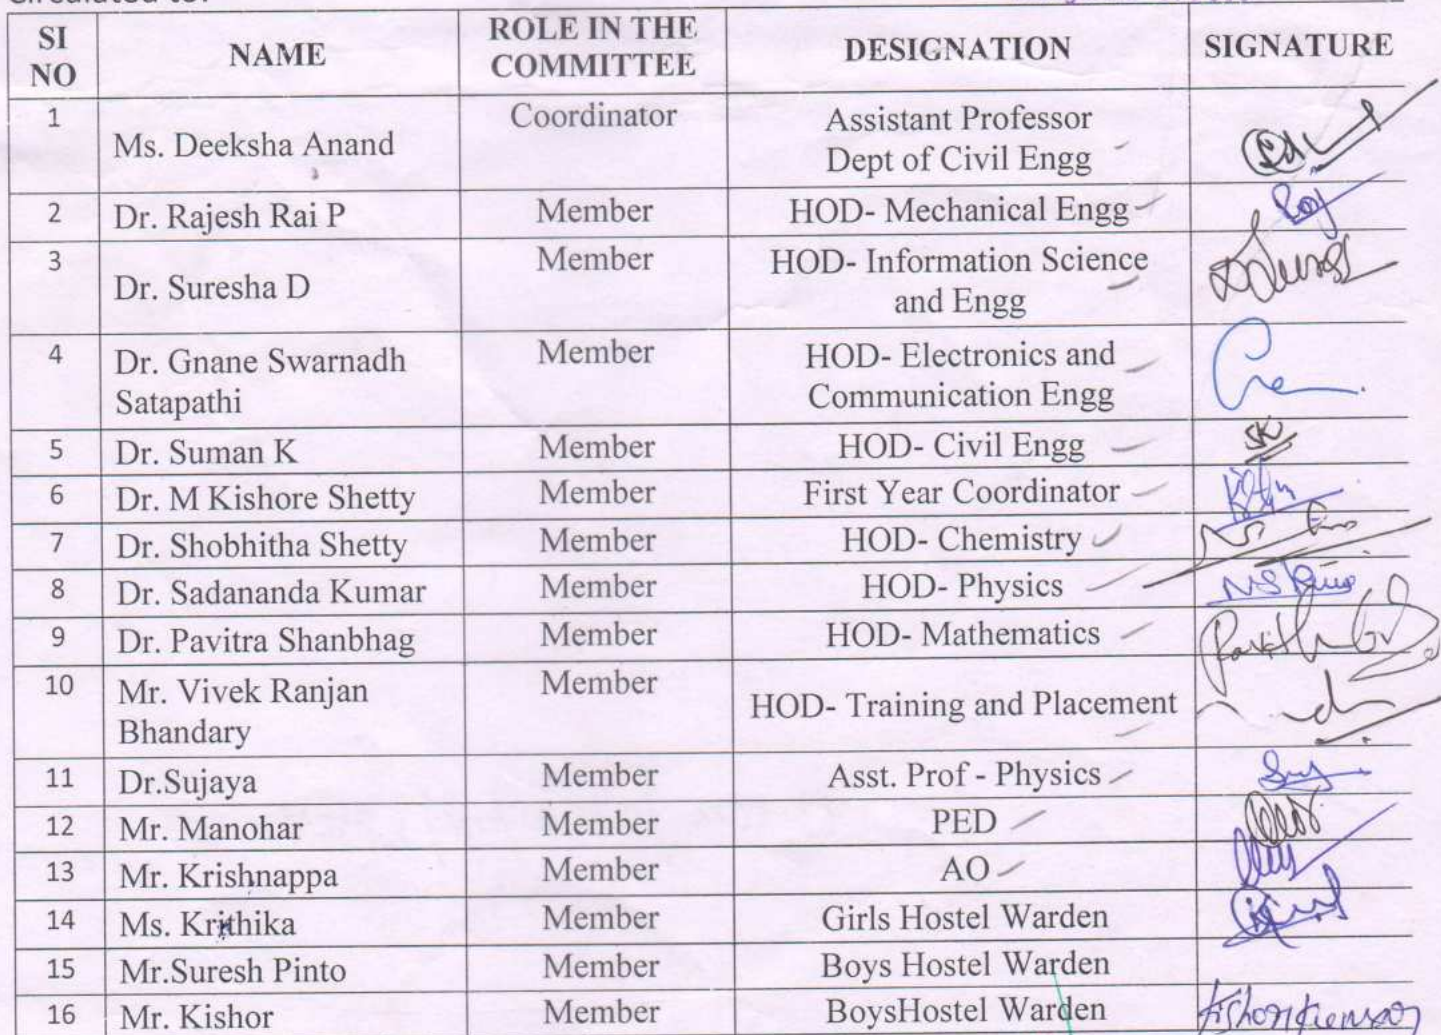 Circulated to:
SI NO NAME ROLE IN THE COMMITTEE DESIGNATION SIGNATURE
1 Ms. Deeksha Anand Coordinator Assistant Professor Dept of Civil Engg
2 Dr. Rajesh Rai P Member HOD- Mechanical Engg
3 Dr. Suresha D Member HOD- Information Science and Engg
4 Dr. Gnane Swarnadh Satapathi Member HOD- Electronics and Communication Engg
5 Dr. Suman K Member HOD- Civil Engg SK
6 Dr. M Kishore Shetty Member First Year Coordinator
7 Dr. Shobhitha Shetty Member HOD- Chemistry
8 Dr. Sadananda Kumar Member HOD- Physics
9 Dr. Pavitra Shanbhag Member HOD- Mathematics
10 Mr. Vivek Ranjan Bhandary Member HOD- Training and Placement
11 Dr.Sujaya Member Asst. Prof - Physics
12 Mr. Manohar Member PED
13 Mr. Krishnappa Member AO
14 Ms. Krithika Member Girls Hostel Warden
15 Mr.Suresh Pinto Member Boys Hostel Warden
16 Mr. Kishor Member BoysHostel Warden